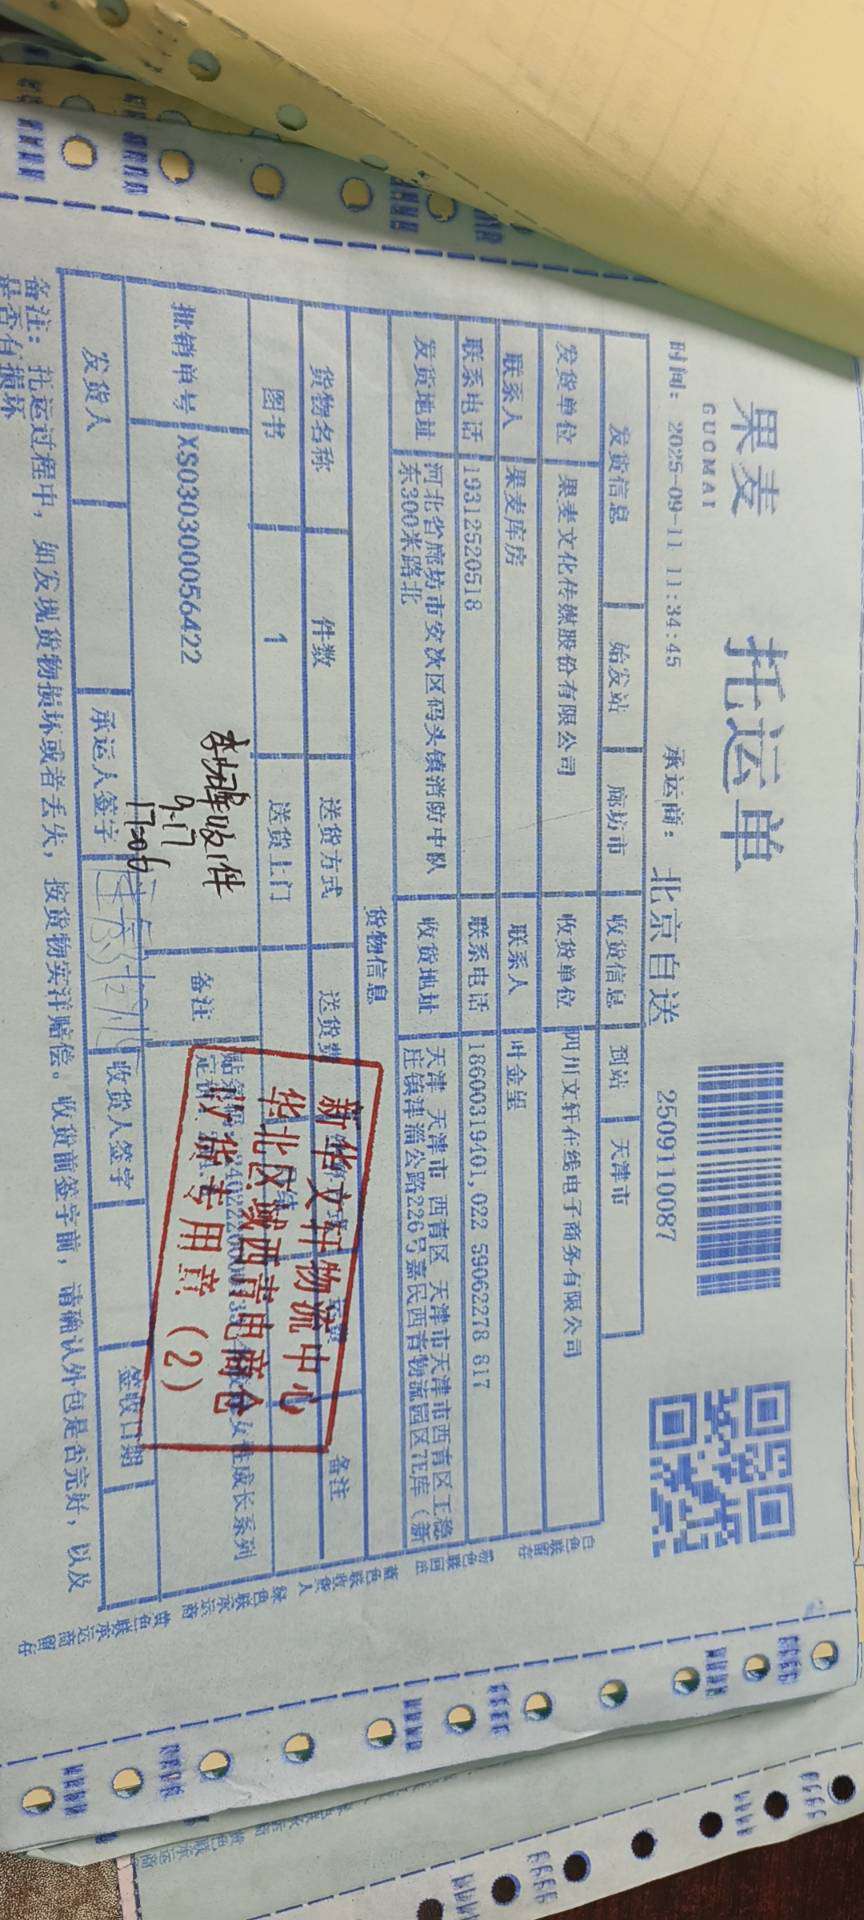 果麦
GUOMAI
托运单
时间: 2025-09-11 11:34:45 承运商: 北京自送 2509110087
发货信息 始发站 廊坊市 收货信息 到站 天津市
发货单位 果麦文化传媒股份有限公司 收货单位 四川文轩在线电子商务有限公司
联系人 果麦库房 联系人 叶金呈
联系电话 19312520518 联系电话 18600319401,022 59062278 817
发货地址 河北省廊坊市安次区码头镇消防中队 收货地址 天津 天津市 西青区 天津市天津市西青区王稳
东300米路北 庄镇津淄公路226号嘉民西青物流园区7E库（新
货物信息
货物名称 件数 送货方式 送货费 备注
图书 1 送货上门
批销单号 XS030300056422 备注
女性成长系列
收件
9.17
新华文轩物流中心
华北区域西青电商仓
收货专用章（2）
发货人 承运人签字 收货人签字 签收日期
备注: 托运过程中, 如发现货物损坏或者丢失, 按货物实洋赔偿。收货前签字前, 请确认外包是否完好, 以及
是否有损坏
白色联留存
粉色联回库
蓝色联收货人
绿色联承运商
黄色联承运商留存